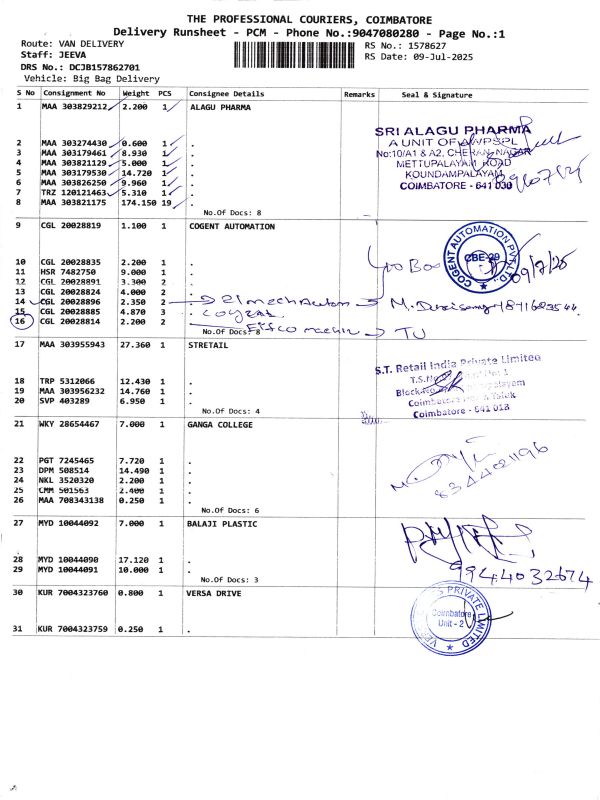 THE PROFESSIONAL COURIERS, COIMBATORE
Delivery Runsheet - PCM - Phone No.:9047080280 - Page No.:1
Route: VAN DELIVERY
Staff: JEEVA
DRS No.: DCJB157862701
Vehicle: Big Bag Delivery
RS No.: 1578627
RS Date: 09-Jul-2025
S No Consignment No Weight PCS Consignee Details Remarks Seal & Signature
1 MAA 303829212 2.200 1 ALAGU PHARMA
2 MAA 303274430 0.600 1 .
3 MAA 303179461 8.930 1 .
4 MAA 303821129 5.000 1 .
5 MAA 303179530 14.720 1 .
6 MAA 303826250 9.960 1 .
7 TRZ 120121463 5.310 1 .
8 MAA 303821175 174.150 19 .
No.Of Docs: 8
SRI ALAGU PHARMA
A UNIT OF AWPSPL
No:10/A1 & A2, CHERAN NAGAR
METTUPALAYAM ROAD
KOUNDAMPALAYAM
COIMBATORE - 641 030
9 CGL 20028819 1.100 1 COGENT AUTOMATION
10 CGL 20028835 2.200 1 .
11 HSR 7482750 9.000 1 .
12 CGL 20028891 3.300 2 .
13 CGL 20028824 4.000 2 .
14 CGL 20028896 2.350 2
15 CGL 20028885 4.870 3 .
16 CGL 20028814 2.200 2
No.Of Docs: 8
COGENT AUTOMATION PVT LTD
CBE-29
09/7/25
17 MAA 303955943 27.360 1 STRETAIL
18 TRP 5312066 12.430 1 .
19 MAA 303956232 14.760 1 .
20 SVP 403289 6.950 1 .
No.Of Docs: 4
S.T. Retail India Private Limited
Coimbatore - 641 018
21 WKY 28654467 7.000 1 GANGA COLLEGE
22 PGT 7245465 7.720 1 .
23 DPM 508514 14.490 1 .
24 NKL 3520320 2.200 1 .
25 CMM 501563 2.400 1 .
26 MAA 708343138 0.250 1 .
No.Of Docs: 6
8344021196
27 MYD 10044092 7.000 1 BALAJI PLASTIC
28 MYD 10044090 17.120 1 .
29 MYD 10044091 10.000 1 .
No.Of Docs: 3
9944032674
30 KUR 7004323760 0.800 1 VERSA DRIVE
31 KUR 7004323759 0.250 1 .
PRIVATE LIMITED
Coimbatore
Unit - 2